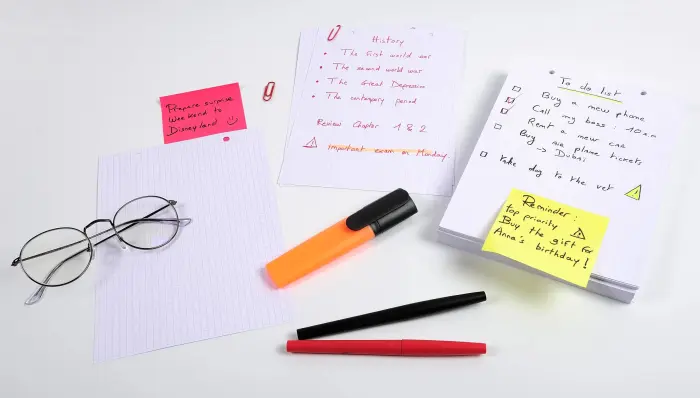 Prepare surprise
Weekend to
Disneyland
History
The first world war
The second world war
The Great Depression
The contempory period
Review Chapter 1 & 2
Important exam on Monday
To do list
Buy a new phone
Call my boss : 10 a.m
Rent a new car
Buy plane tickets
→ Dubai
Take dog to the vet
Reminder :
top priority
Buy the gift for
Anna's birthday !